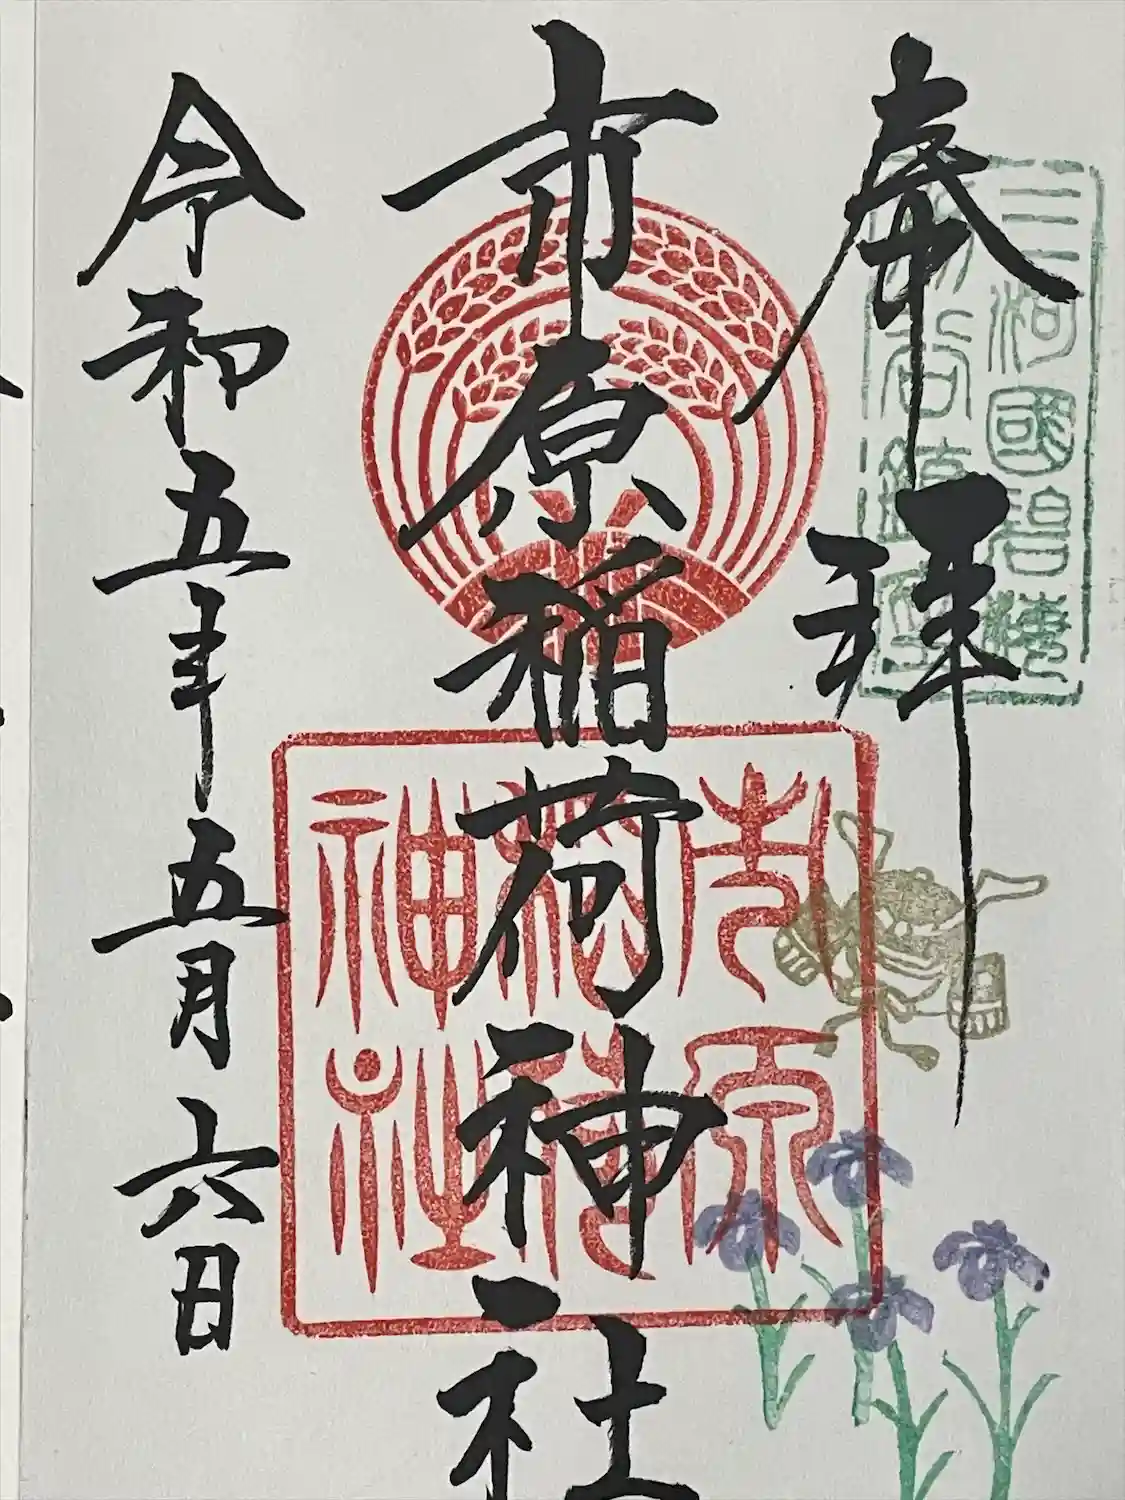 奉拝
三河國碧海
刈谷鎮座
市原稲荷神社
市原
稲荷
神社
令和五年五月六日